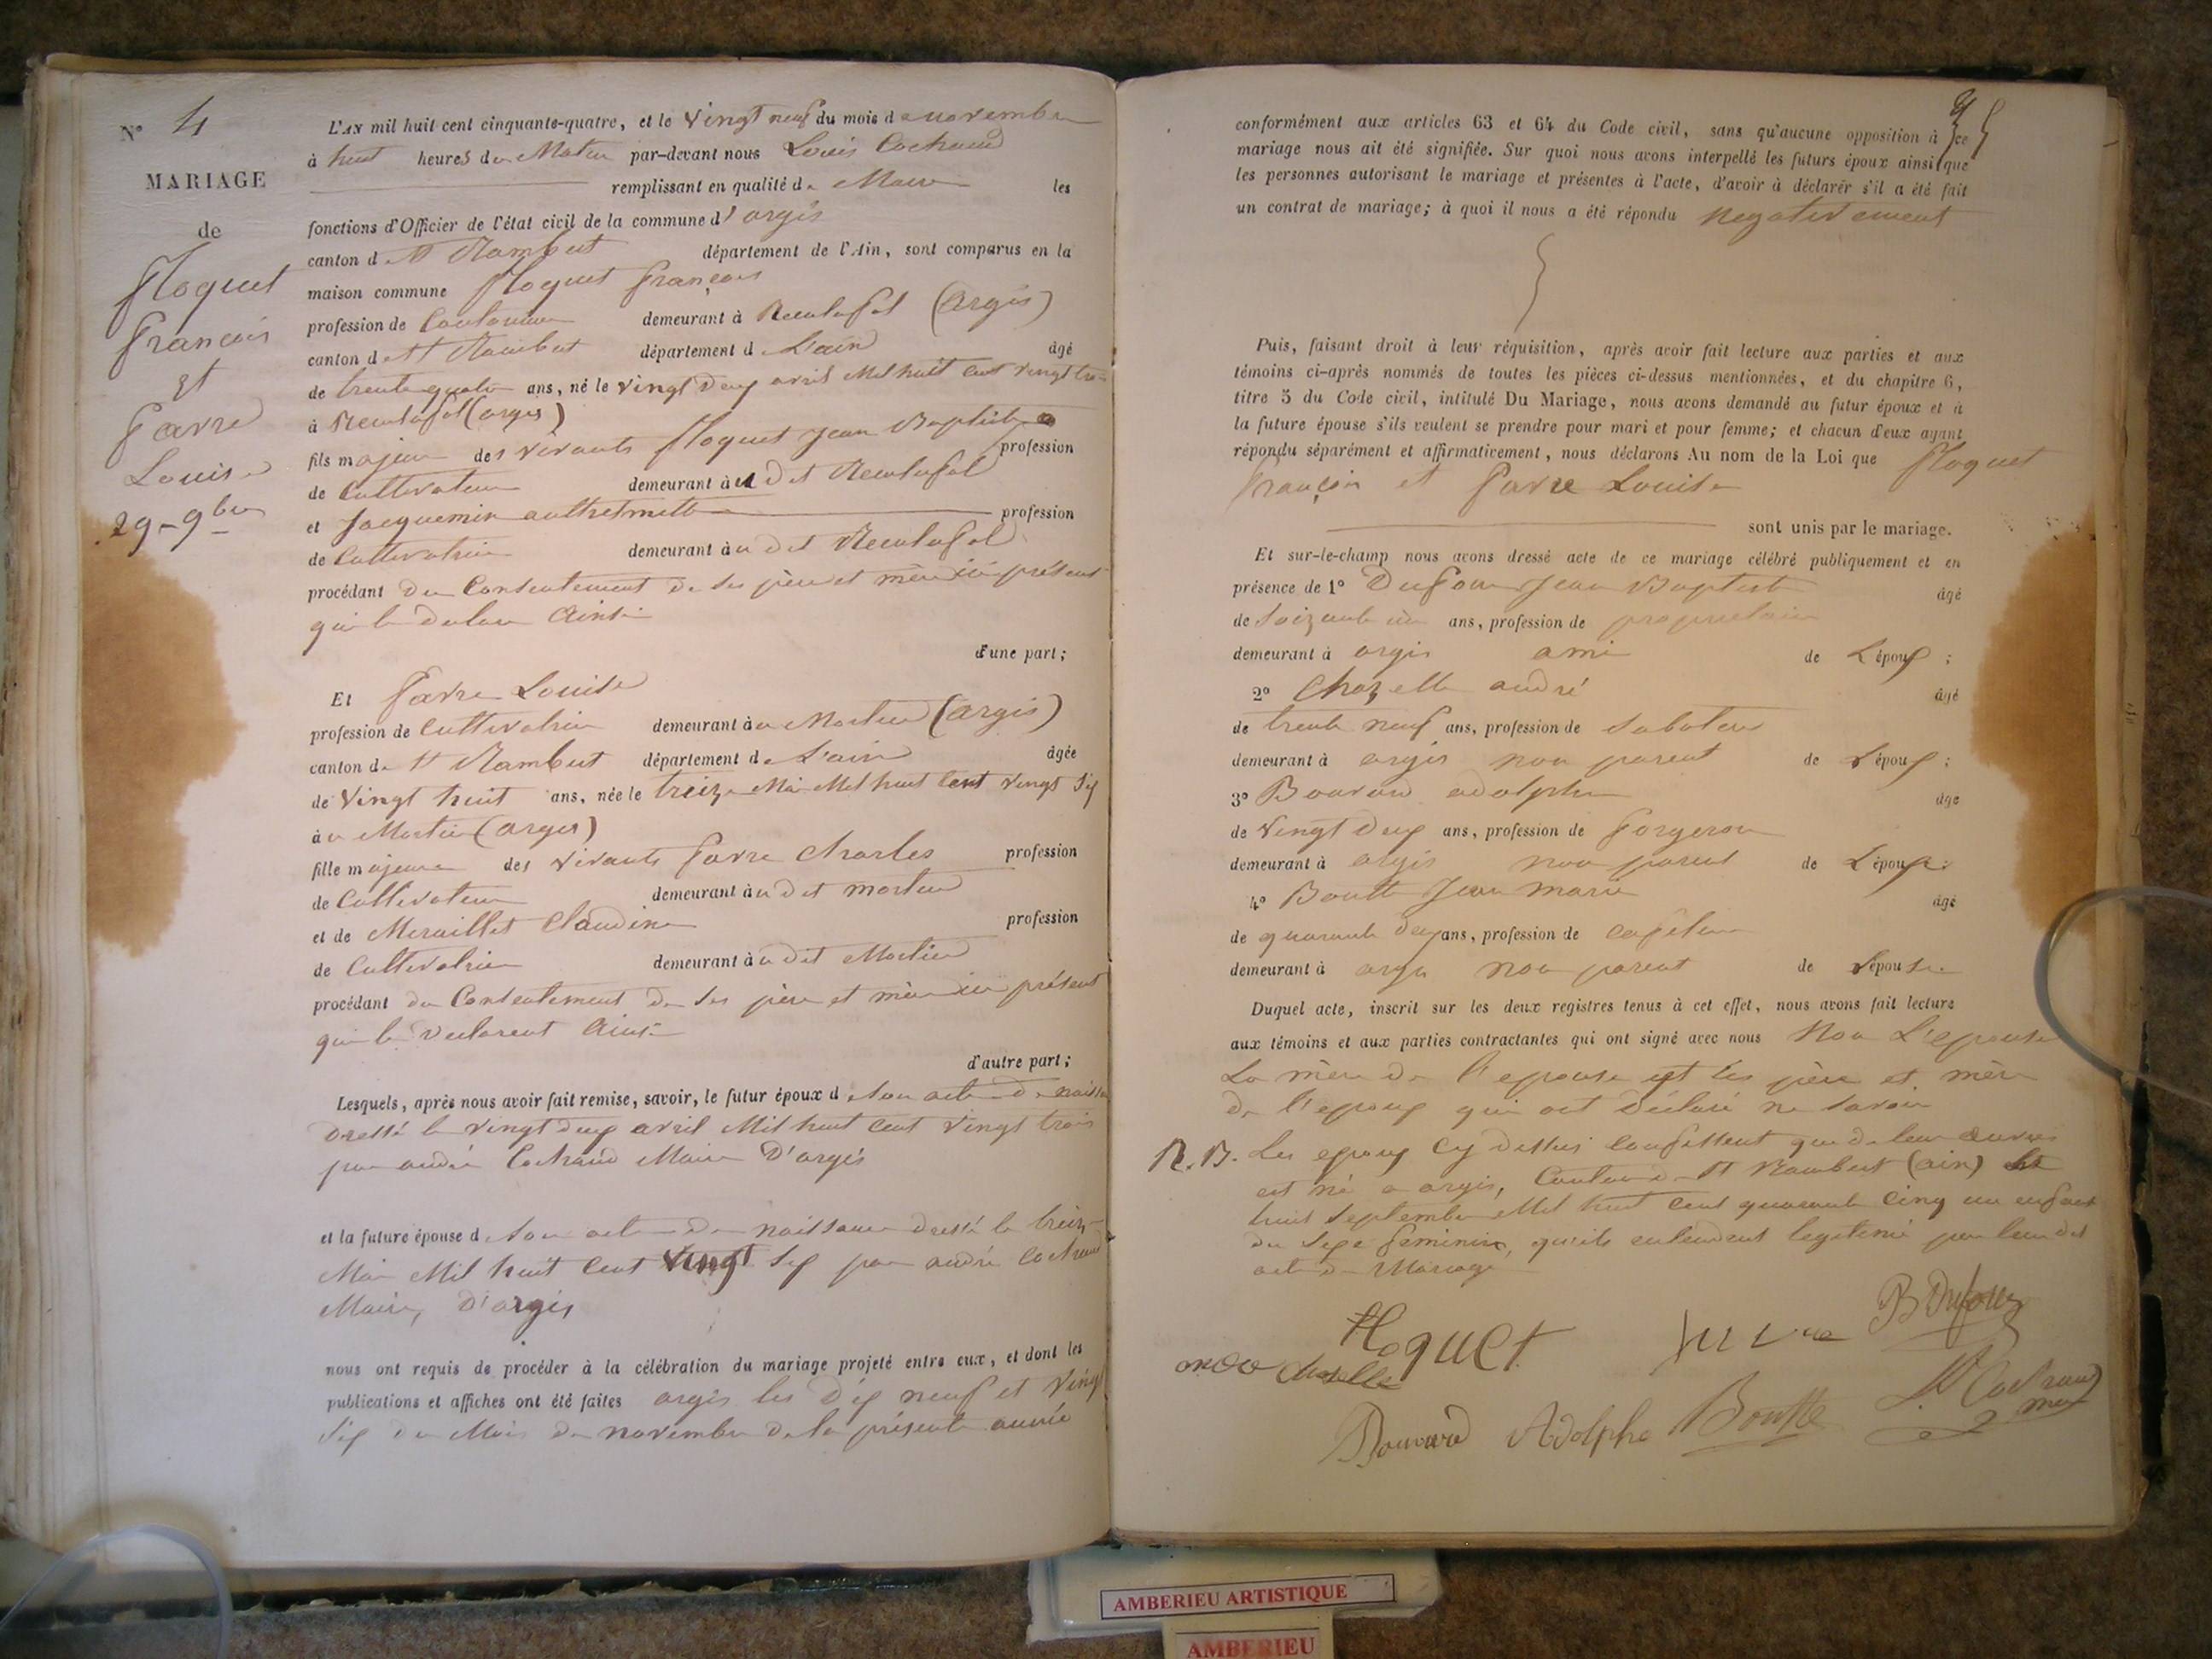 N° 4
MARIAGE
de
Floquet
François
et
Favre
Louise
29 - 9bre
L'AN mil huit cent cinquante-quatre, et le vingt neuf du mois de novembre
à huit heures du Matin par-devant nous Louis Cochaud
remplissant en qualité de Maire les
fonctions d'Officier de l'état civil de la commune d'argis
canton d St Rambert département de l'Ain, sont comparus en la
maison commune Floquet françois
profession de demeurant à Reculafol (Argis)
canton d St Rambert département d L'ain âgé
de trente quatre ans, né le vingt deux avril Mil huit cent vingt
à Reculafol (argis)
fils majeur des vivants floquet Jean Baptiste profession
de Cultivateur demeurant au dit Reculafol
et Jacquemin anthelmette profession
de Cultivatrice demeurant au dit Reculafol
procédant du Consentement de ses père et mère ici présent
qui le Ainsi
d'une part;
Et Favre Louise
profession de Cultivatrice demeurant au Mortier (Argis)
canton d St Rambert département de L'ain âgée
de Vingt huit ans, née le treize Mai Mil huit Cent vingt Six
au Mortier (argis)
fille majeure des vivants favre Charles profession
de Cultivateur demeurant au dit mortier
et de Miraillet Claudine profession
de Cultivatrice demeurant au dit Mortier
procédant du Consentement de ses père et mère ici présent
qui le declarent Ainsi
d'autre part;
Lesquels, après nous avoir fait remise, savoir, le futur époux d son acte de
Dressé le vingt deux avril Mil huit cent vingt trois
par andré Cochaud Maire D'argis
et la future épouse d son acte de naissance dressé le treize
Mai Mil huit Cent vingt Six par andré Cochaud
Maire, D'argis
nous ont requis de procéder à la célébration du mariage projeté entre eux, et dont les
publications et affiches ont été faites argis les Dix neuf et Vingt
Six du Mois de novembre de la présente année
conformément aux articles 63 et 64 du Code civil, sans qu'aucune opposition à ce
mariage nous ait été signifiée. Sur quoi nous avons interpellé les futurs époux ainsi que
les personnes autorisant le mariage et présentes à l'acte, d'avoir à déclarer s'il a été fait
un contrat de mariage; à quoi il nous a été répondu Negativement
Puis, faisant droit à leur réquisition, après avoir fait lecture aux parties et aux
témoins ci-après nommés de toutes les pièces ci-dessus mentionnées, et du chapitre 6,
titre 5 du Code civil, intitulé Du Mariage, nous avons demandé au futur époux et à
la future épouse s'ils veulent se prendre pour mari et pour femme; et chacun d'eux ayant
répondu séparément et affirmativement, nous déclarons Au nom de la Loi que Floquet
françois et Favre Louise
sont unis par le mariage.
Et sur-le-champ nous avons dressé acte de ce mariage célébré publiquement et en
présence de 1° Dufour Jean Baptiste âgé
de Soizante ans, profession de proprietaire
demeurant à argis ami de L'époux ;
2° Chazelle andré âgé
de trente neuf ans, profession de Saboteur
demeurant à argis non parent de L'époux ;
3° Bouvard adolphe âgé
de Vingt deux ans, profession de forgeron
demeurant à argis non parent de L'épouse
4° Boutte Jean Marie âgé
de quarante deux ans, profession de
demeurant à argis non parent de L'épouse
Duquel acte, inscrit sur les deux registres tenus à cet effet, nous avons fait lecture
aux témoins et aux parties contractantes qui ont signé avec nous Non L'epouse
La mère de l'epouse et les père et mère
de l'epoux qui ont déclaré ne savoir
N. B. Les epoux Cy dessus confessent que de leur œuvres
est né a argis, Canton de St Rambert (ain) le
huit Septembre Mil huit Cent quarante Cinq un enfant
du Sexe feminin, qu'ils entendent legitimé par leur dit
acte de Mariage
Floquet
B Dufour
Chazelle
Bouvard Adolphe Boutte
L. Cochaud
AMBERIEU ARTISTIQUE
AMBERIEU